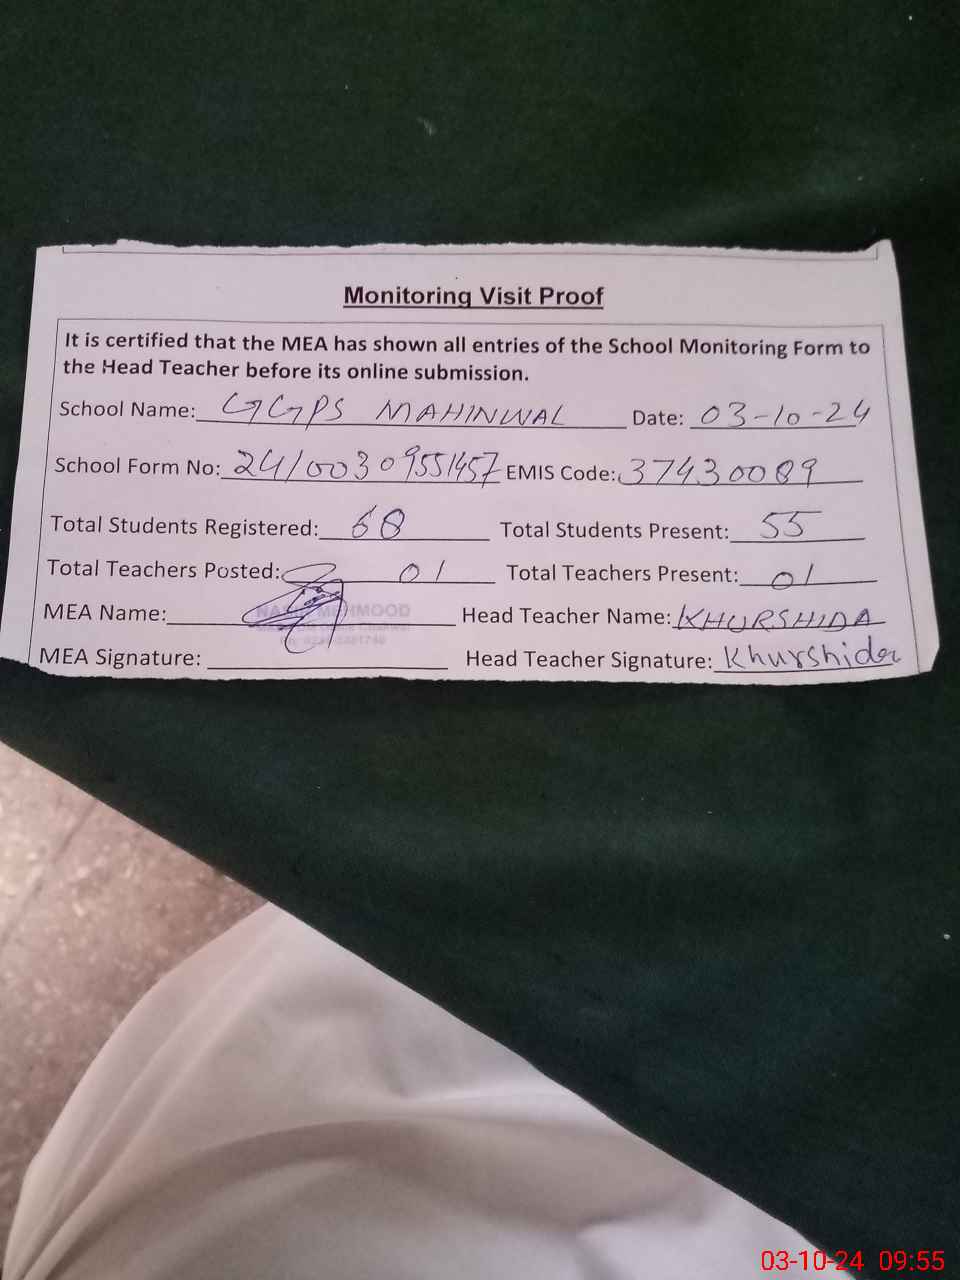 Monitoring Visit Proof
It is certified that the MEA has shown all entries of the School Monitoring Form to
the Head Teacher before its online submission.
School Name: GGPS MAHINWAL Date: 03-10-24
School Form No: 24100309551457 EMIS Code: 37430089
Total Students Registered: 68 Total Students Present: 55
Total Teachers Posted: 01 Total Teachers Present: 01
MEA Name: MEHMOOD Head Teacher Name: KHURSHIDA
MEA Signature: Head Teacher Signature: Khurshida
03-10-24 09:55